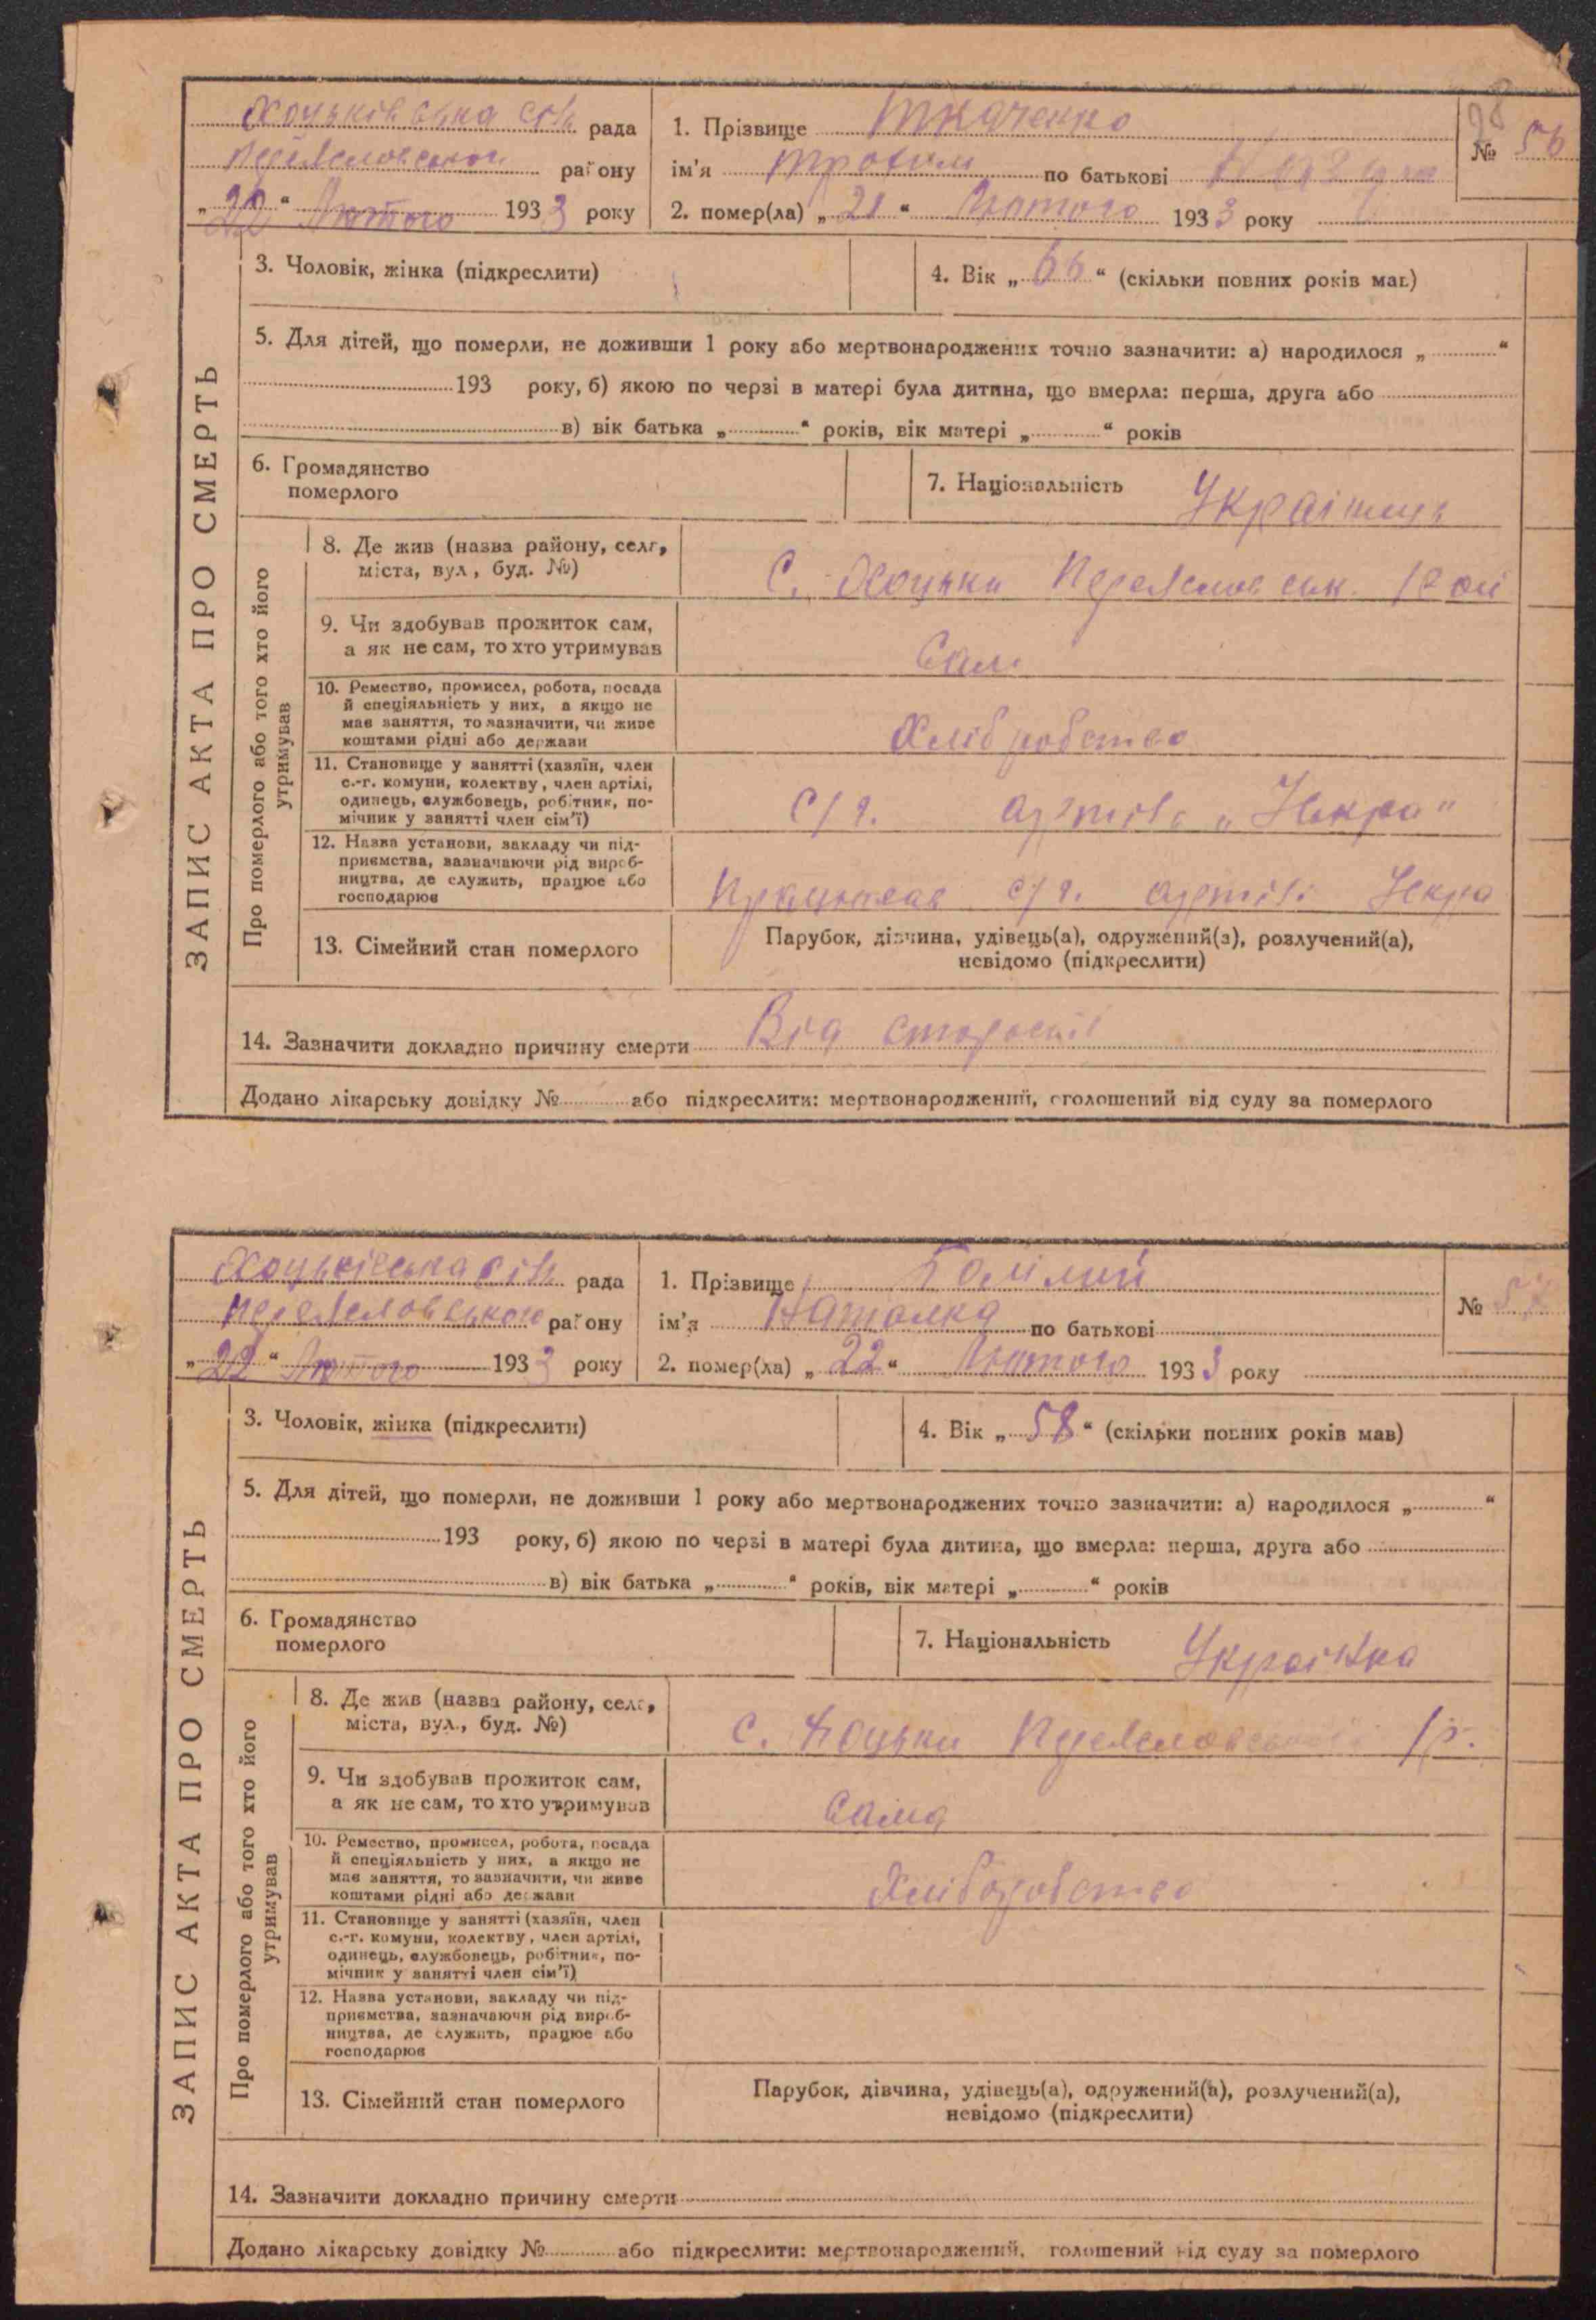 98
Хоцьківська сіль рада
Переяславського району
„22“ Лютого 1933 року
1. Прізвище Ткаченко
ім'я Трохим по батькові
2. помер(ла) „21“ Лютого 1933 року
№ 56
ЗАПИС АКТА ПРО СМЕРТЬ
3. Чоловік, жінка (підкреслити)
4. Вік „66“ (скільки повних років мав)
5. Для дітей, що померли, не доживши 1 року або мертвонароджених точно зазначити: а) народилося „ “
193 року, б) якою по черзі в матері була дитина, що вмерла: перша, друга або
в) вік батька „ “ років, вік матері „ “ років
6. Громадянство
померлого
7. Національність Українець
Про померлого або того хто його
утримував
8. Де жив (назва району, села,
міста, вул., буд. №)
С. Хоцьки Переяславськ. рай
9. Чи здобував прожиток сам,
а як не сам, то хто утримував
Сам
10. Ремество, промисел, робота, посада
й спеціяльність у них, а якщо не
має заняття, то зазначити, чи живе
коштами рідні або держави
Хліборобство
11. Становище у занятті (хазяїн, член
с.-г. комуни, колективу, член артілі,
одинець, службовець, робітник, по-
мічник у занятті член сім'ї)
С/г. артіль „Іскра“
12. Назва установи, закладу чи під-
приємства, зазначаючи рід вироб-
ництва, де служить, працює або
господарює
Працював с/г. артілі Іскра
13. Сімейний стан померлого
Парубок, дівчина, удівець(а), одружений(а), розлучений(а),
невідомо (підкреслити)
14. Зазначити докладно причину смерти Від старості
Додано лікарську довідку № або підкреслити: мертвонароджений, оголошений від суду за померлого
Хоцьківська сіль рада
Переяславського району
„22“ Лютого 1933 року
1. Прізвище
ім'я Наталка по батькові
2. помер(ла) „22“ Лютого 1933 року
№ 57
ЗАПИС АКТА ПРО СМЕРТЬ
3. Чоловік, жінка (підкреслити)
4. Вік „58“ (скільки повних років мав)
5. Для дітей, що померли, не доживши 1 року або мертвонароджених точно зазначити: а) народилося „ “
193 року, б) якою по черзі в матері була дитина, що вмерла: перша, друга або
в) вік батька „ “ років, вік матері „ “ років
6. Громадянство
померлого
7. Національність Українка
Про померлого або того хто його
утримував
8. Де жив (назва району, села,
міста, вул., буд. №)
С. Хоцьки Переяславський р.
9. Чи здобував прожиток сам,
а як не сам, то хто утримував
Сама
10. Ремество, промисел, робота, посада
й спеціяльність у них, а якщо не
має заняття, то зазначити, чи живе
коштами рідні або держави
Хліборобство
11. Становище у занятті (хазяїн, член
с.-г. комуни, колективу, член артілі,
одинець, службовець, робітник, по-
мічник у занятті член сім'ї)
12. Назва установи, закладу чи під-
приємства, зазначаючи рід вироб-
ництва, де служить, працює або
господарює
13. Сімейний стан померлого
Парубок, дівчина, удівець(а), одружений(а), розлучений(а),
невідомо (підкреслити)
14. Зазначити докладно причину смерти
Додано лікарську довідку № або підкреслити: мертвонароджений, оголошений від суду за померлого